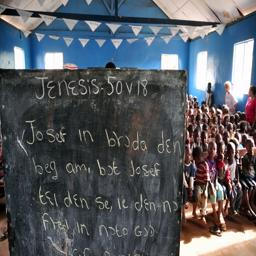 JENESIS-50v18
Josef in broda dɛn
beg am, bɔt Josef
tɛl dɛn se, lɛ dɛn nɔ
in nɔto God